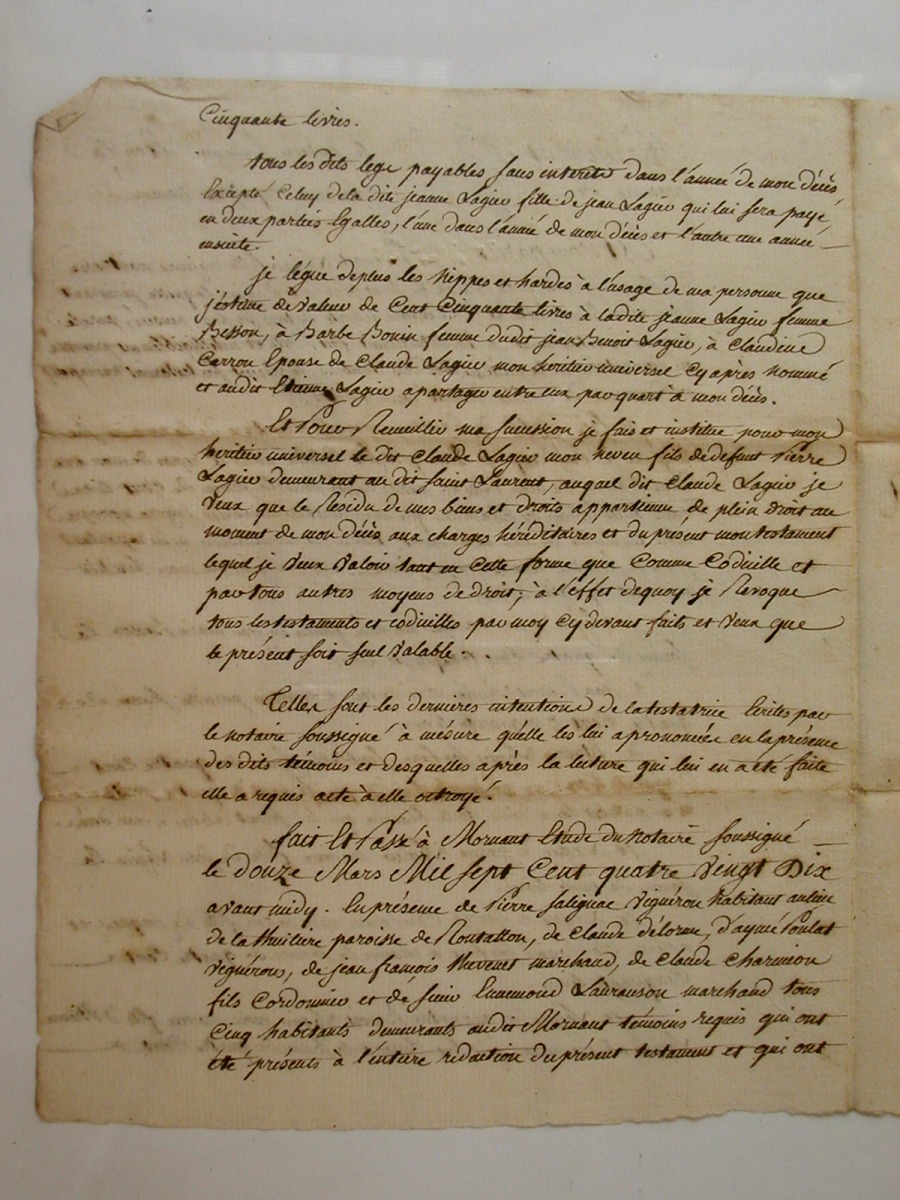 Cinquante livres.
tous les dits legs payables sans interets dans l'année de mon décès
Excepté Celuy de la dite jeanne Lagier fille de jean Lagier qui lui sera payé
en deux parties Egalles, l'une dans l'année de mon décès et l'autre une année
ensuite.
je légue deplus les Nippes et hardes à l'usage de ma personne que
j'estime de valeur de Cent Cinquante livres à ladite jeanne Lagier femme
Besson, à Barbe Bonin femme dudit jean Benoit Lagier, à Claudine
Carron Epouse de Claude Lagier mon heritier universel Cy après nommé
et audit Etienne Lagier a partager entre eux par quart à mon décès.
Et Pour Recueillir ma succession je fais et institue pour mon
heritier universel le dit Claude Lagier mon neveu fils de defunt Pierre
Lagier demeurant au dit Saint Laurent, auquel dit Claude Lagier je
Veux que le Residu de mes biens et droits appartienne de plein droit au
moment de mon décès aux charges héréditaires et du présent mon testament
lequel je veux valoir tant en Cette forme que Comme Codicille et
par tous autres moyens de droit, à l'effet dequoy je Revoque
tous les testaments et codicilles par moy Cy devant faits et veux que
le présent soit seul valable.
Telles sont les dernières intentions de la testatrice Ecrites par
le notaire soussigné à mésure qu'elle les lui a prononcées en la présence
des dits témoins et desquelles après la lecture qui lui en a été faite
elle a requis acte à elle octroyé.
fait Et Passé à Mornant Etude du Notaire soussigné
le douze Mars Mil sept Cent quatre vingt Dix
avant midy. En présence de Pierre salignac Vignéron habitant au lieu
de la thuiliere paroisse de Rontallon, de Claude délorme, d'aymé Poulat
Vignérons, de jean françois thevenet marchand, de Claude Charmion
fils Cordonnier et de sieur Ennemond Lauranson marchand tous
Cinq habitants demeurants audit Mornant témoins requis qui ont
été présents à l'entiere rédaction du présent testament et qui ont